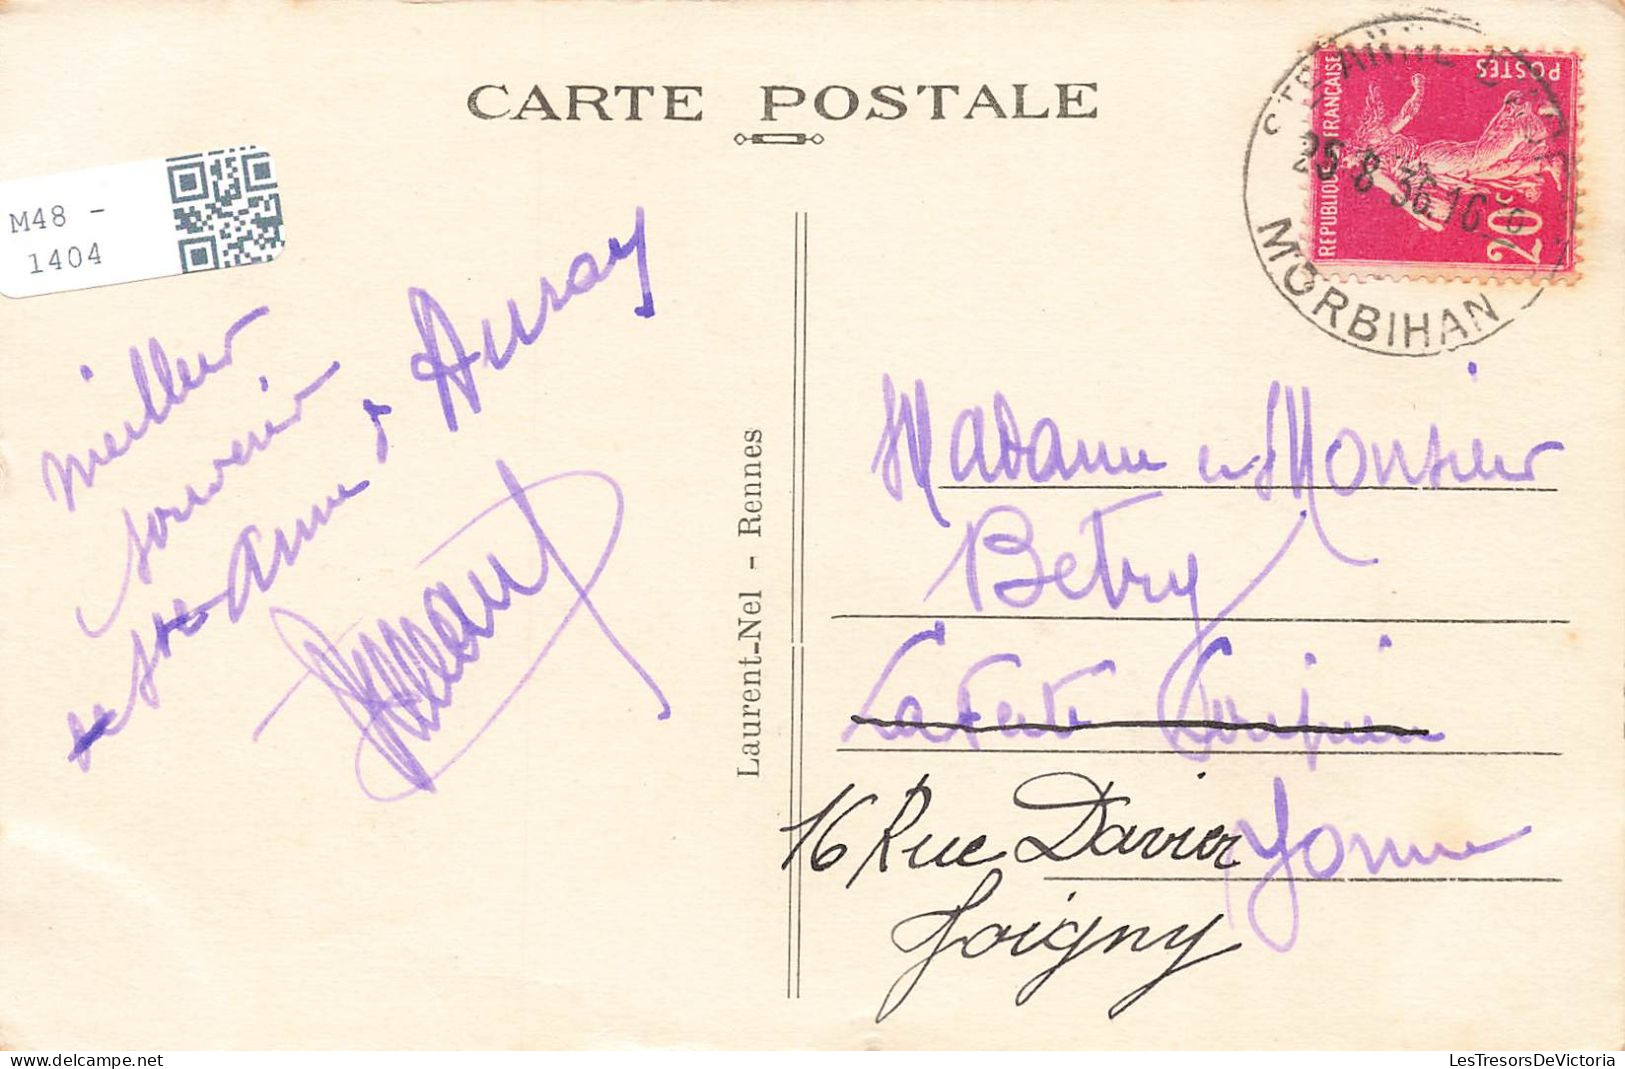 CARTE POSTALE
M48 -
1404
STE ANNE D'AURAY
25 - 8 36.16
MORBIHAN
REPUBLIQUE FRANÇAISE
POSTES
20c
meilleur
souvenir
de Ste Anne d'Auray
Laurent-Nel - Rennes
Madame et Monsieur
Betry
La Ferté Loupière
Yonne
16 Rue Davier
Joigny
LesTresorsDeVictoria